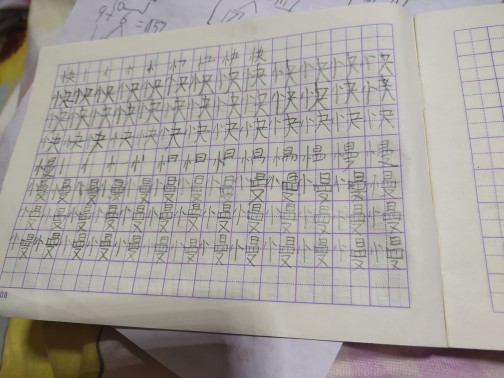 快 忄 快 快
快快快快快快快快快快快快快
快快快快快快快快快快快快快
快快快快快快快快快快快快快
慢 忄 慢
慢慢慢慢慢慢慢慢慢慢慢慢慢
慢慢慢慢慢慢慢慢慢慢慢慢慢
慢慢慢慢慢慢慢慢慢慢慢慢慢